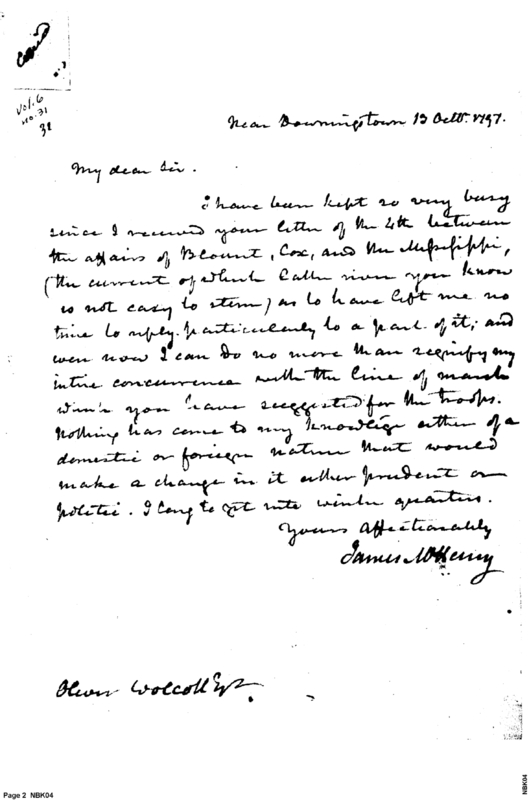 Copied
Vol. 6
no. 31
31
Near Downingstown 13 Octbr. 1797.
My dear Sir.
I have been kept so very busy
since I received your letter of the 4th between
the affairs of Blount, Cox, and the Mississippi,
(the current of which latter river you know
is not easy to stem) as to have left me no
time to reply particularly to a part of it; and
even now I can do no more than signify my
intire concurrence with the line of march
which you have suggested for the troops.
Nothing has come to my knowlege either of a
domestic or foreign nature that would
make a change in it either prudent or
politic. I long to get into winter quarters.
Yours affectionately
James McHenry
Oliver Wolcott Esqr.
Page 2 NBK04
NBK04